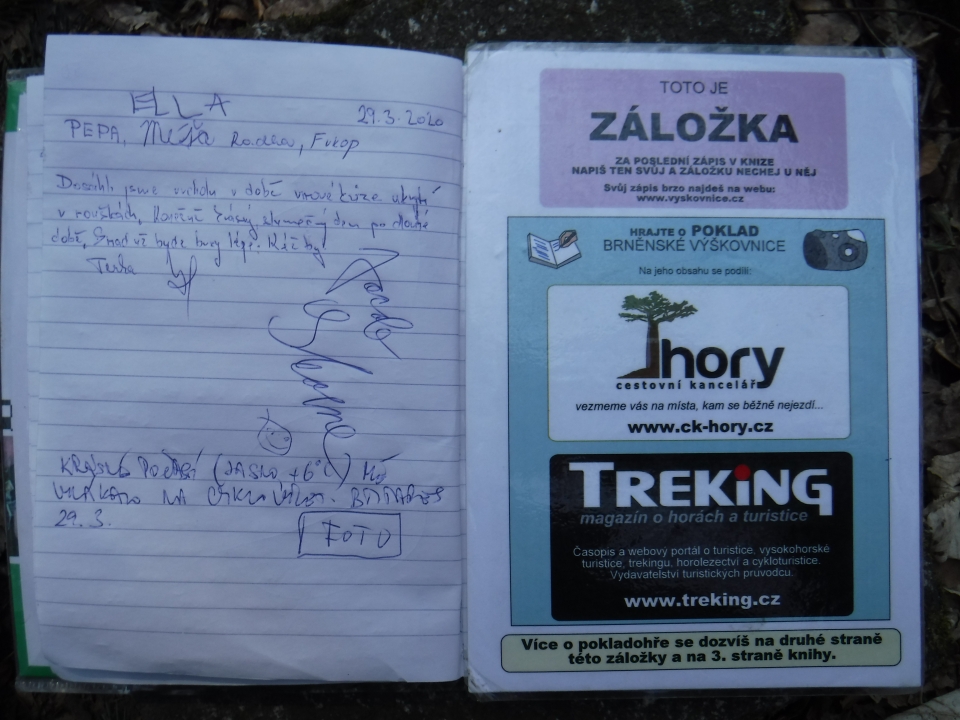 ELLA
29.3.2020
PEPA, Míša Fukop
Dosáhli jsme vrcholu v době virové krize ukrytí
v rouškách. Konečně krásný slunečný den po dlouhé
době. Snad už bude brzy lépe.
Terka
KRÁSNÉ POČASÍ (JASNO +6°C) MĚ
VYLÁKALO NA
29.3.
FOTO
TOTO JE
ZÁLOŽKA
ZA POSLEDNÍ ZÁPIS V KNIZE
NAPIŠ TEN SVŮJ A ZÁLOŽKU NECHEJ U NĚJ
Svůj zápis brzo najdeš na webu:
www.vyskovnice.cz
HRAJTE O POKLAD
BRNĚNSKÉ VÝŠKOVNICE
Na jeho obsahu se podíli:
hory
cestovní kancelář
vezmeme vás na místa, kam se běžně nejezdí...
www.ck-hory.cz
TREKiNG
magazín o horách a turistice
Časopis a webový portál o turistice, vysokohorské
turistice, trekingu, horolezectví a cykloturistice.
Vydavatelství turistických průvodců.
www.treking.cz
Více o pokladohře se dozvíš na druhé straně
této záložky a na 3. straně knihy.